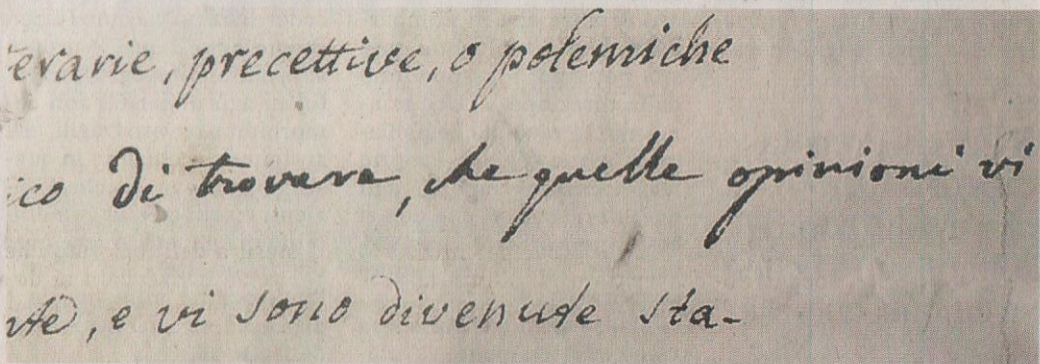 erarie, precettive, o polemiche
ico di trovare, che quelle opinioni vi
ute, e vi sono divenute sta-